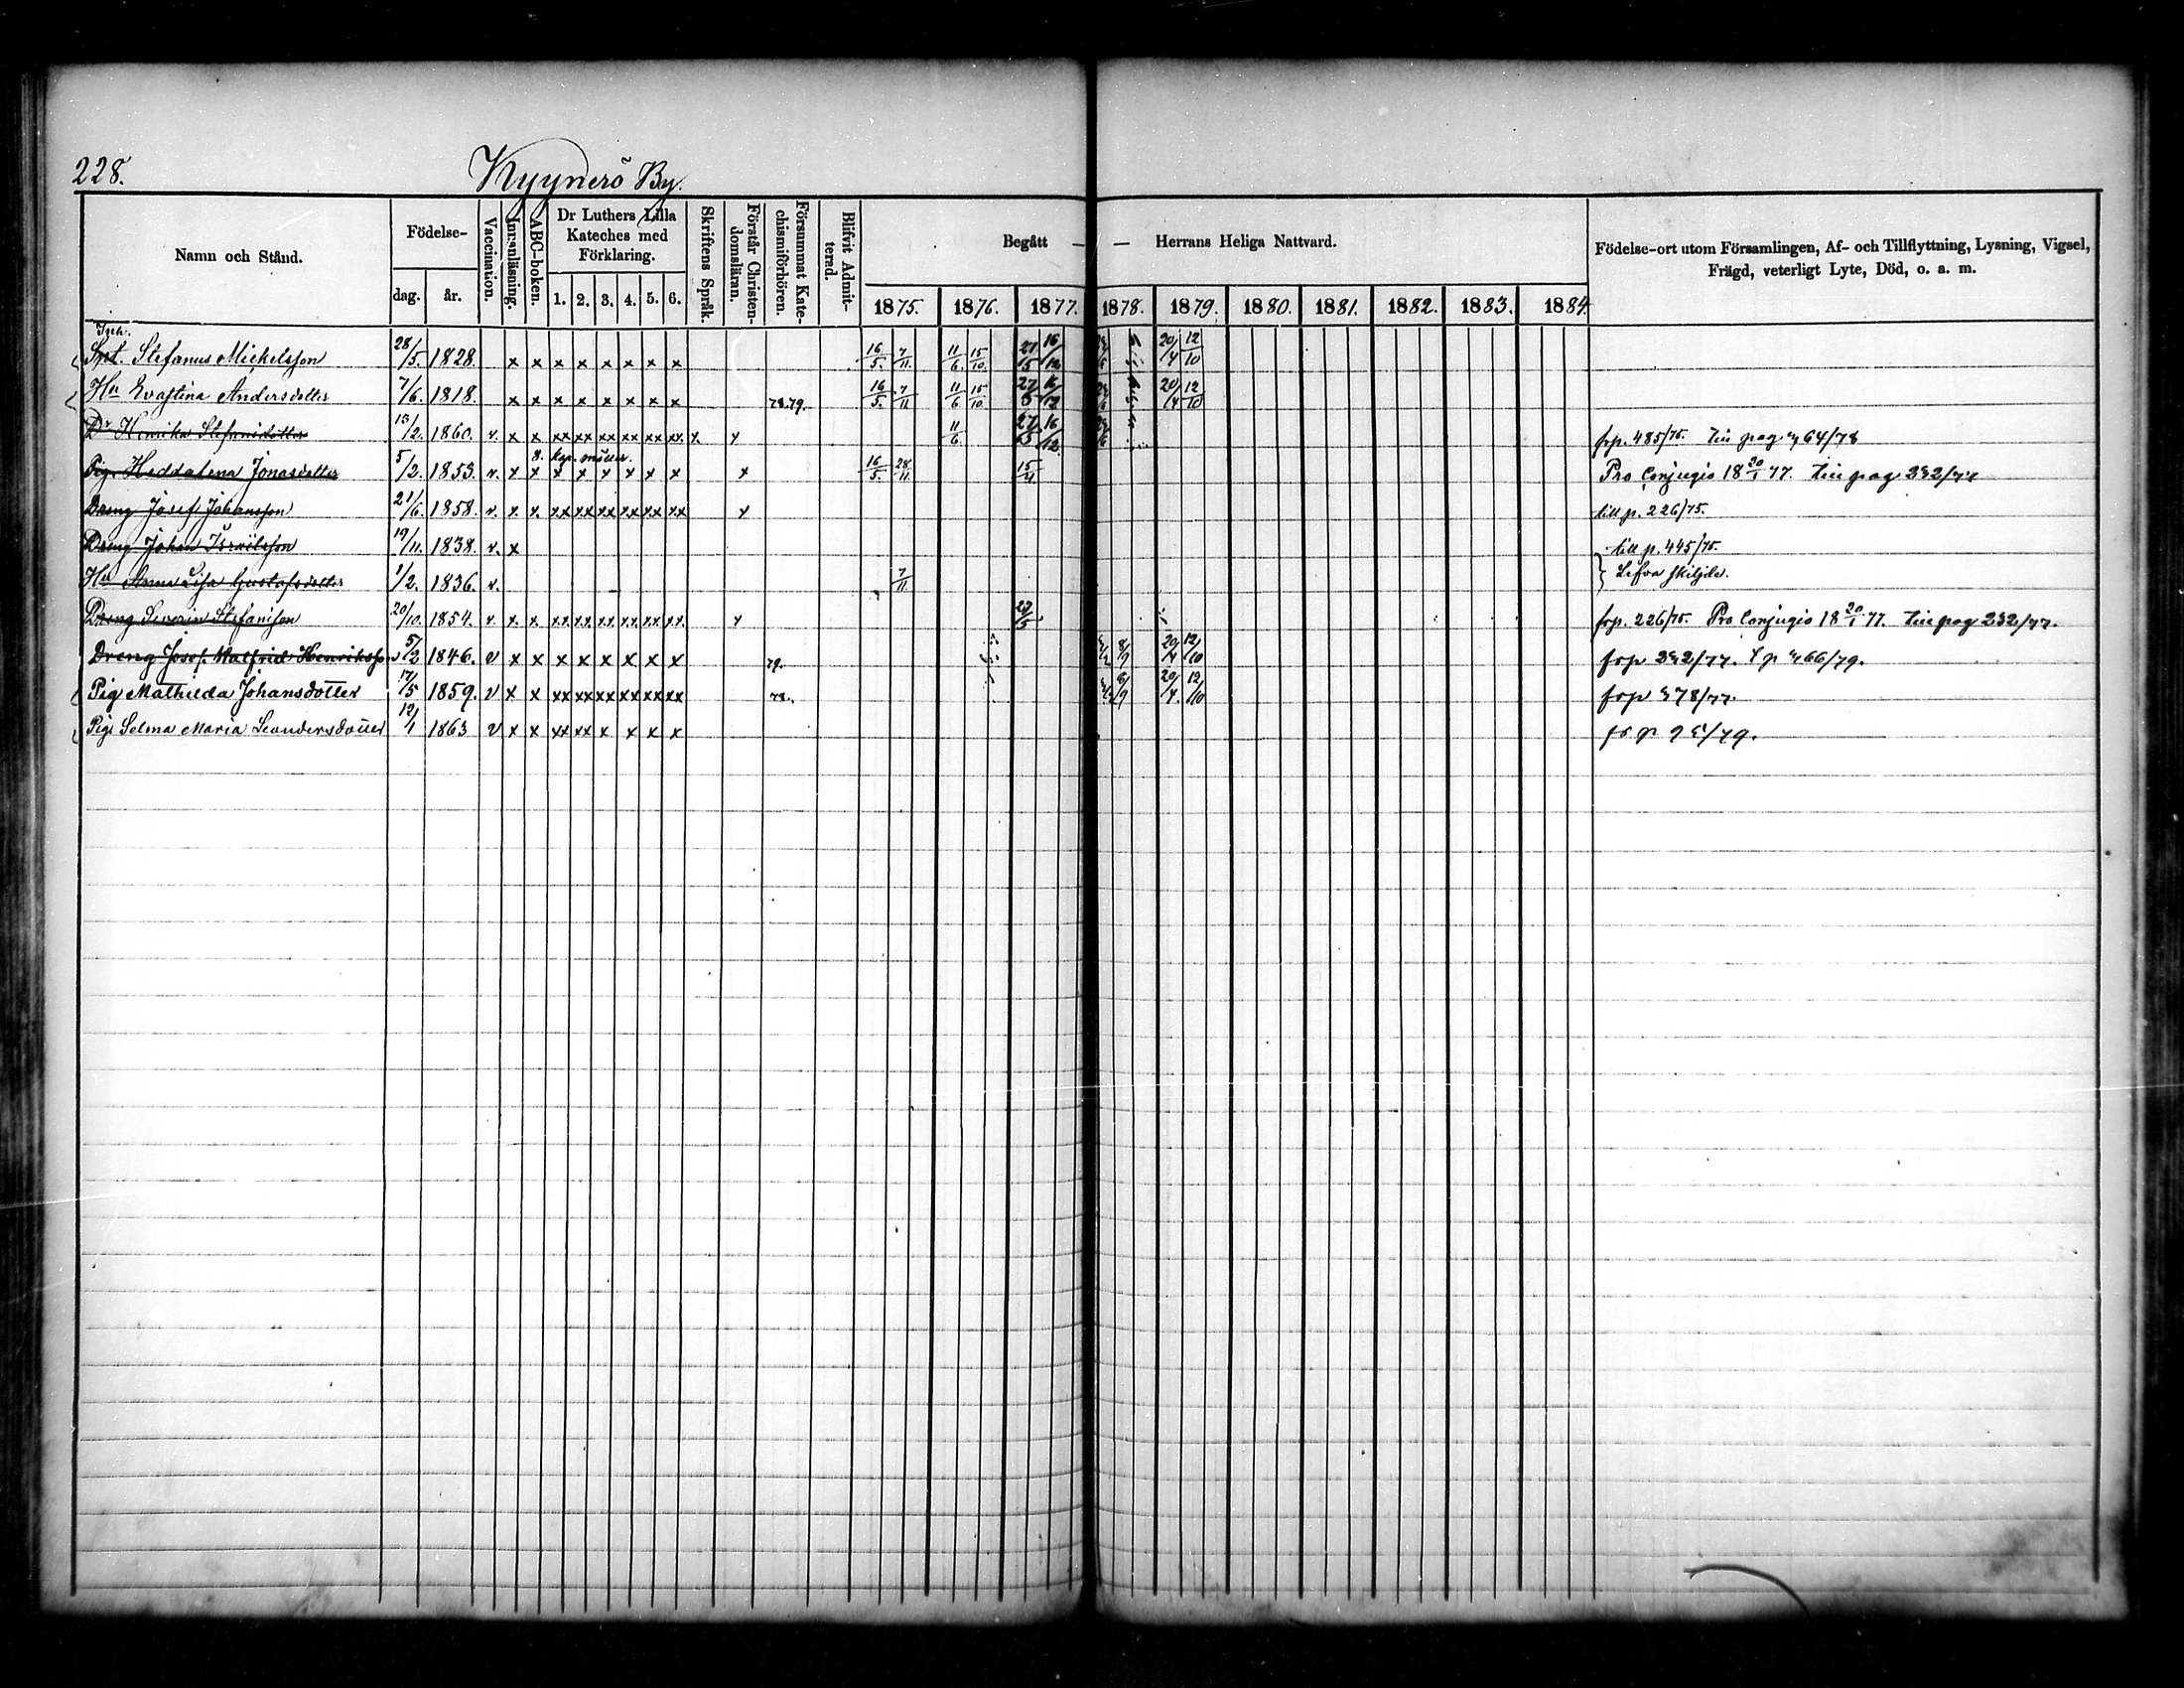 228. Kyynerö By.
Namn och Stånd. Födelse- dag. år. Vaccination. Innanläsning. ABC-boken. Dr Luthers Lilla Kateches med Förklaring. 1. 2. 3. 4. 5. 6. Skriftens Språk. Förstår Christendomsläran. Försummat Katechismiförhören. Blifvit Admitterad. Begått — — Herrans Heliga Nattvard. Födelse-ort utom Församlingen, Af- och Tillflyttning, Lysning, Vigsel, Frägd, veterligt Lyte, Död, o. a. m.
1875. 1876. 1877. 1878. 1879. 1880. 1881. 1882. 1883. 1884.
Stefanus Mickelsson 28/5. 1828. x x x x x x x x 16/5. 7/11. 11/6. 15/10. 20/4 12/10
Hu Evastina Andersdotter 7/6. 1818. x x x x x x x x 78.79. 16/5. 7/11 11/6. 15/10. 20/4 12/10
Dr Henrika Stefansdotter 13/2. 1860. v. x x xx xx xx xx xx xx x x 11/6. 27/5 16/12 frp. 485/75.
Pig. Heddalena Jonasdotter 5/2. 1853. v. x x x x x x x x x 16/5. 28/11. 15/4 Pro Conjugio 18 20/1 77.
Dreng Josef Johansson 21/6. 1858. v. x x xx xx xx xx xx xx x till p. 226/75.
Dreng Johan Israelsson 19/11. 1838. v. x till p. 445/75.
Hu Anna Lisa Gustafsdotter 1/2. 1836. v. 7/11 Lefva skiljde.
Dreng Severin Stefansson 20/10. 1854. v. x x xx xx xx xx xx xx x 27/5 frp. 226/75. Pro Conjugio 18 20/1 77. 232/77.
Dreng Josef Walfrid Henriksson 5/2 1846. v x x x x x x x x 79. 20/4 12/10
Pig Mathilda Johansdotter 17/5 1859. v x x xx xx xx xx xx xx 78. 20/4. 12/10
Pig Selma Maria Leandersdotter 12/1 1863 v x x xx xx x x x x